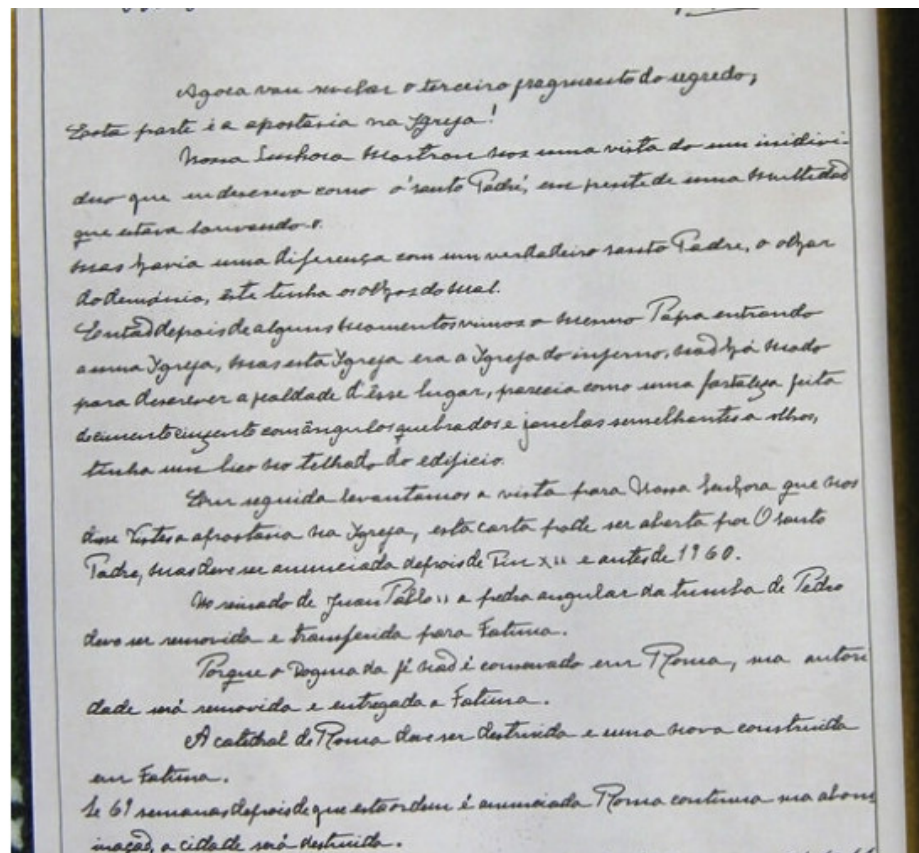 Agora vou revelar o terceiro fragmento do segredo;
Esta parte é a apostasia na Igreja!
Nossa Senhora mostrou nos uma vista do um individi-
duo que eu descrevo como o 'santo Padre', em frente de uma multidaõ
que estava louvando o.
mas havia uma diferença com um verdadeiro santo Padre, o olhar
do demónio, êste tinha os olhos do mal.
Entaõ depois de alguns momentos vimos o mesmo Papa entrando
a uma Igreja, mas esta Igreja era a Igreja do inferno, naõ há modo
para descrever a fealdade d'êsse lugar, parecia como uma fortaleza feita
de cimento cinzento com ângulos quebrados e janelas semelhantes a olhos,
tinha um bico no telhado do edificio.
Em seguida levantamos a vista para Nossa Senhora que nos
disse Vistes a apostasia na Igreja, esta carta pode ser aberta por O santo
Padre, mas deve ser anunciada depois de Pio XII e antes de 1960.
No reinado de Juan Pablo II a pedra angular da tumba de Pedro
deve ser removida e transferida para Fatima.
Porque o Dogma da fé naõ é conservado em Roma, sua autori
dade será removida e entregada a Fatima.
A catedral de Roma deve ser destruida e uma nova construida
em Fatima.
Se 69 semanas depois de que esta ordem é anunciada Roma continua sua abom
inaçaõ, a cidade será destruida.